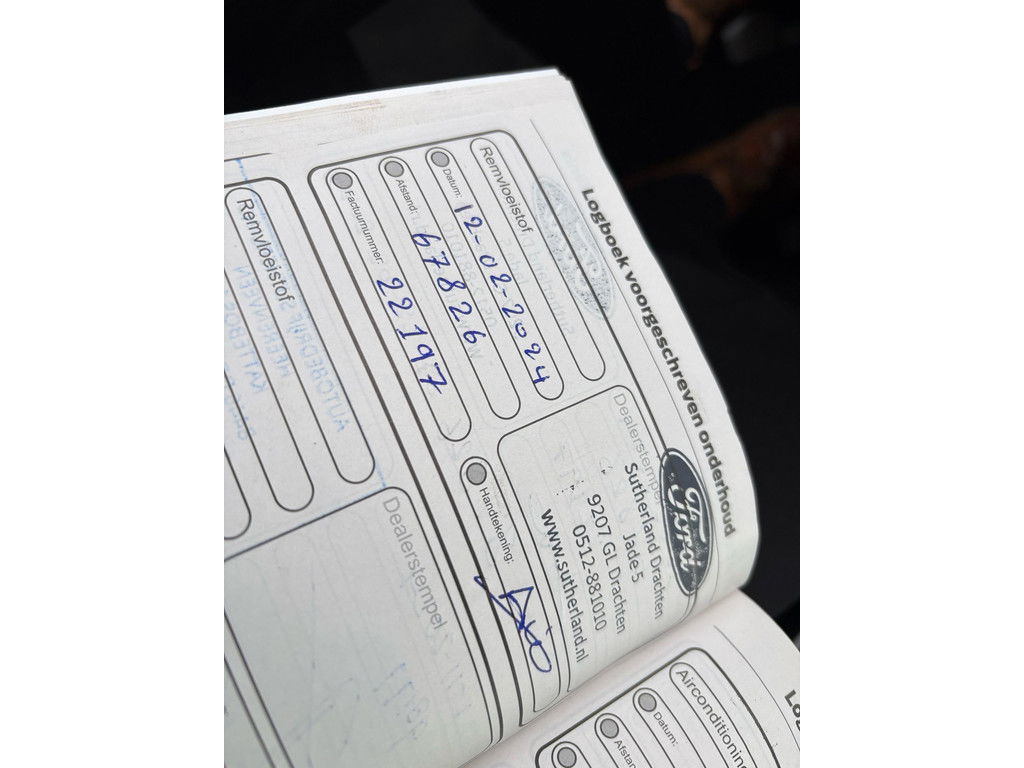 Logboek voorgeschreven onderhoud
Remvloeistof
Datum: 12-02-2024
Afstand: 67826
Factuurnummer: 22197
Dealerstempel
Ford
Sutherland Drachten
Jade 5
9207 GL Drachten
0512-881010
www.sutherland.nl
Handtekening:
Remvloeistof
Dealerstempel
Airconditioning
Datum:
Afstand